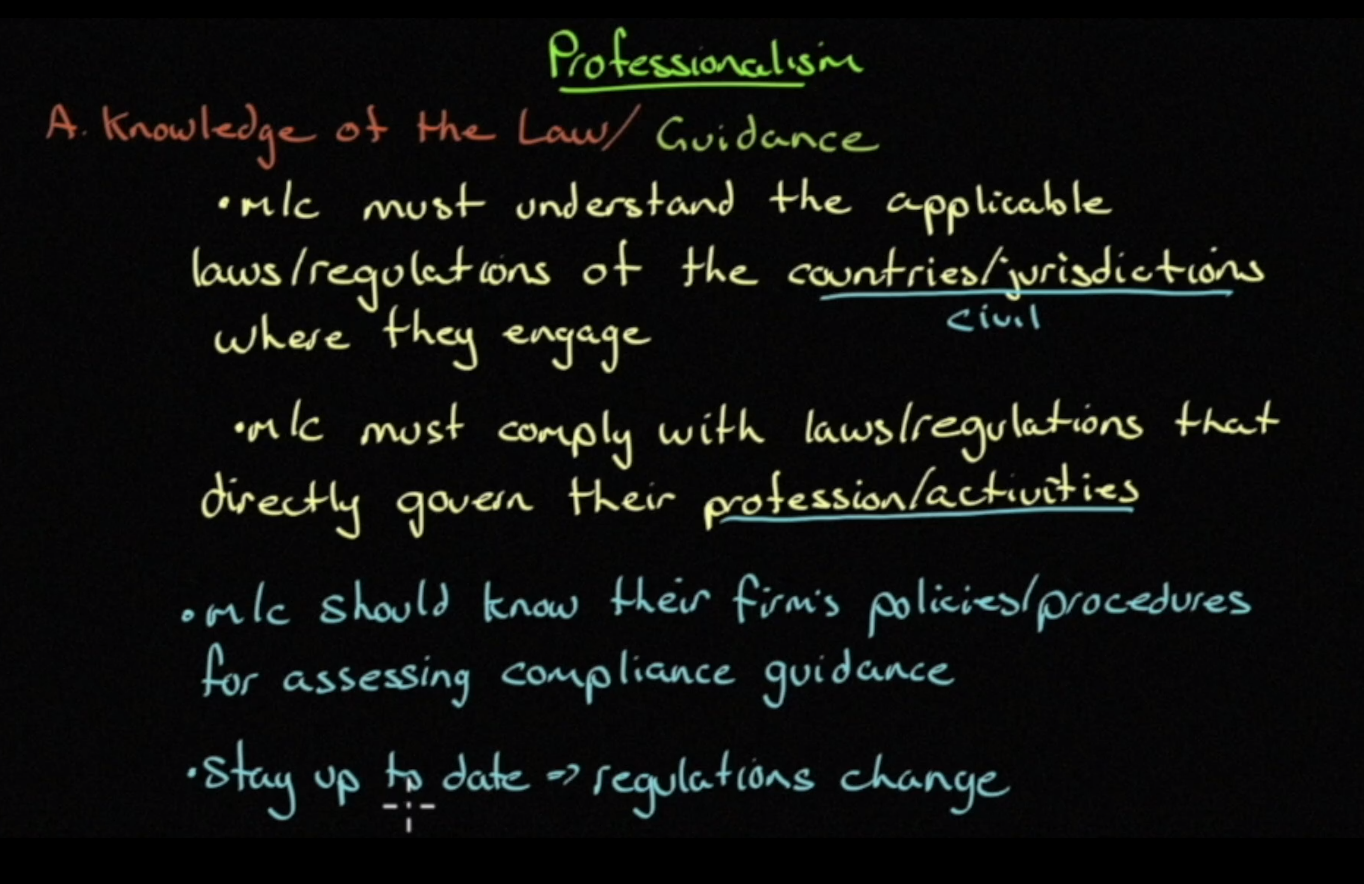 Professionalism
A. Knowledge of the Law/ Guidance
• m/c must understand the applicable
laws/regulations of the countries/jurisdictions
civil
where they engage
• m/c must comply with laws/regulations that
directly govern their profession/activities
• m/c should know their firm's policies/procedures
for assessing compliance guidance
• Stay up to date => regulations change